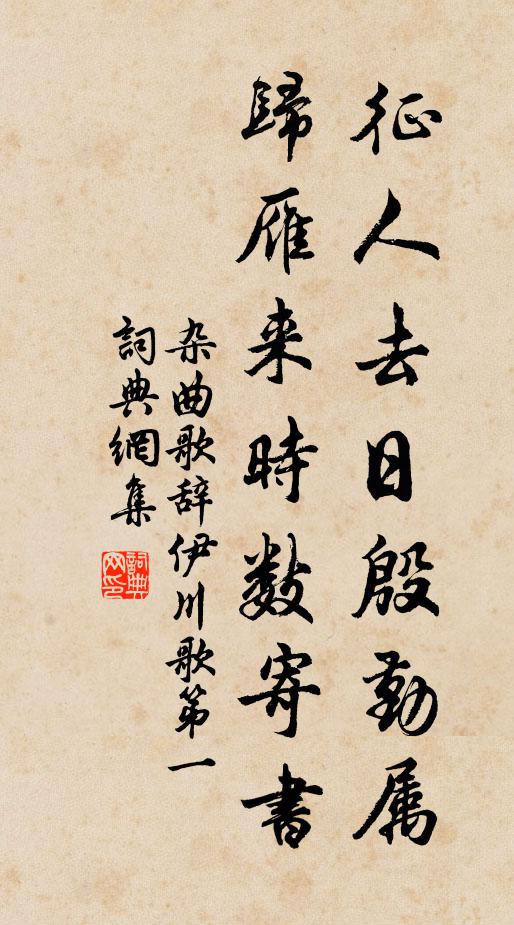 征人去日殷勤属
歸雁来時数寄書
杂曲歌辞伊川歌第一
詞典網集
詞典网印